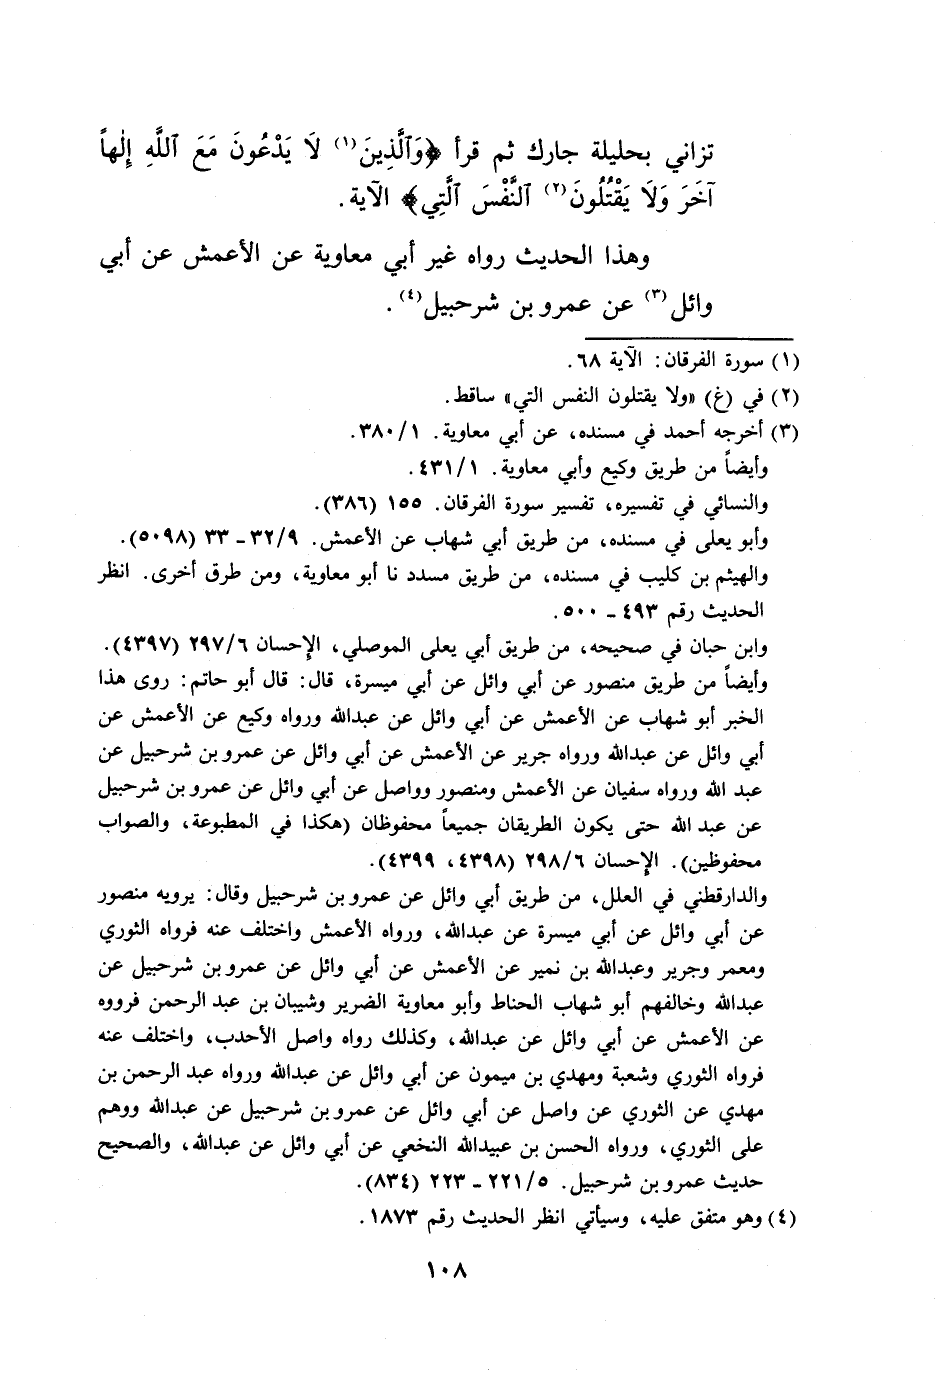 تزاني بحليلة جارك ثم قرأ ﴿وَٱلَّذِينَ(١) لَا يَدْعُونَ مَعَ ٱللَّهِ إِلٰهاً
آخَرَ وَلَا يَقْتُلُونَ(٢) ٱلنَّفْسَ ٱلَّتِي﴾ الآية.
وهذا الحديث رواه غير أبي معاوية عن الأعمش عن أبي
وائل(٣) عن عمرو بن شرحبيل(٤).
(١) سورة الفرقان: الآية ٦٨.
(٢) في (غ) «ولا يقتلون النفس التي» ساقط.
(٣) أخرجه أحمد في مسنده، عن أبي معاوية. ٣٨٠/١.
وأيضاً من طريق وكيع وأبي معاوية. ٤٣١/١.
والنسائي في تفسيره، تفسير سورة الفرقان. ١٥٥ (٣٨٦).
وأبو يعلى في مسنده، من طريق أبي شهاب عن الأعمش. ٣٢/٩ - ٣٣ (٥٠٩٨).
والهيثم بن كليب في مسنده، من طريق مسدد نا أبو معاوية، ومن طرق أخرى. انظر
الحديث رقم ٤٩٣ - ٥٠٠.
وابن حبان في صحيحه، من طريق أبي يعلى الموصلي، الإحسان ٢٩٧/٦ (٤٣٩٧).
وأيضاً من طريق منصور عن أبي وائل عن أبي ميسرة، قال: قال أبو حاتم: روى هذا
الخبر أبو شهاب عن الأعمش عن أبي وائل عن عبدالله ورواه وكيع عن الأعمش عن
أبي وائل عن عبدالله ورواه جرير عن الأعمش عن أبي وائل عن عمرو بن شرحبيل عن
عبد الله ورواه سفيان عن الأعمش ومنصور وواصل عن أبي وائل عن عمرو بن شرحبيل
عن عبد الله حتى يكون الطريقان جميعاً محفوظان (هكذا في المطبوعة، والصواب
محفوظين). الإحسان ٢٩٨/٦ (٤٣٩٨، ٤٣٩٩).
والدارقطني في العلل، من طريق أبي وائل عن عمرو بن شرحبيل وقال: يرويه منصور
عن أبي وائل عن أبي ميسرة عن عبدالله، ورواه الأعمش واختلف عنه فرواه الثوري
ومعمر وجرير وعبدالله بن نمير عن الأعمش عن أبي وائل عن عمرو بن شرحبيل عن
عبدالله وخالفهم أبو شهاب الحناط وأبو معاوية الضرير وشيبان بن عبد الرحمن فرووه
عن الأعمش عن أبي وائل عن عبدالله، وكذلك رواه واصل الأحدب، واختلف عنه
فرواه الثوري وشعبة ومهدي بن ميمون عن أبي وائل عن عبدالله ورواه عبد الرحمن بن
مهدي عن الثوري عن واصل عن أبي وائل عن عمرو بن شرحبيل عن عبدالله ووهم
على الثوري، ورواه الحسن بن عبيدالله النخعي عن أبي وائل عن عبدالله، والصحيح
حديث عمرو بن شرحبيل. ٢٢١/٥ - ٢٢٣ (٨٣٤).
(٤) وهو متفق عليه، وسيأتي انظر الحديث رقم ١٨٧٣.
١٠٨